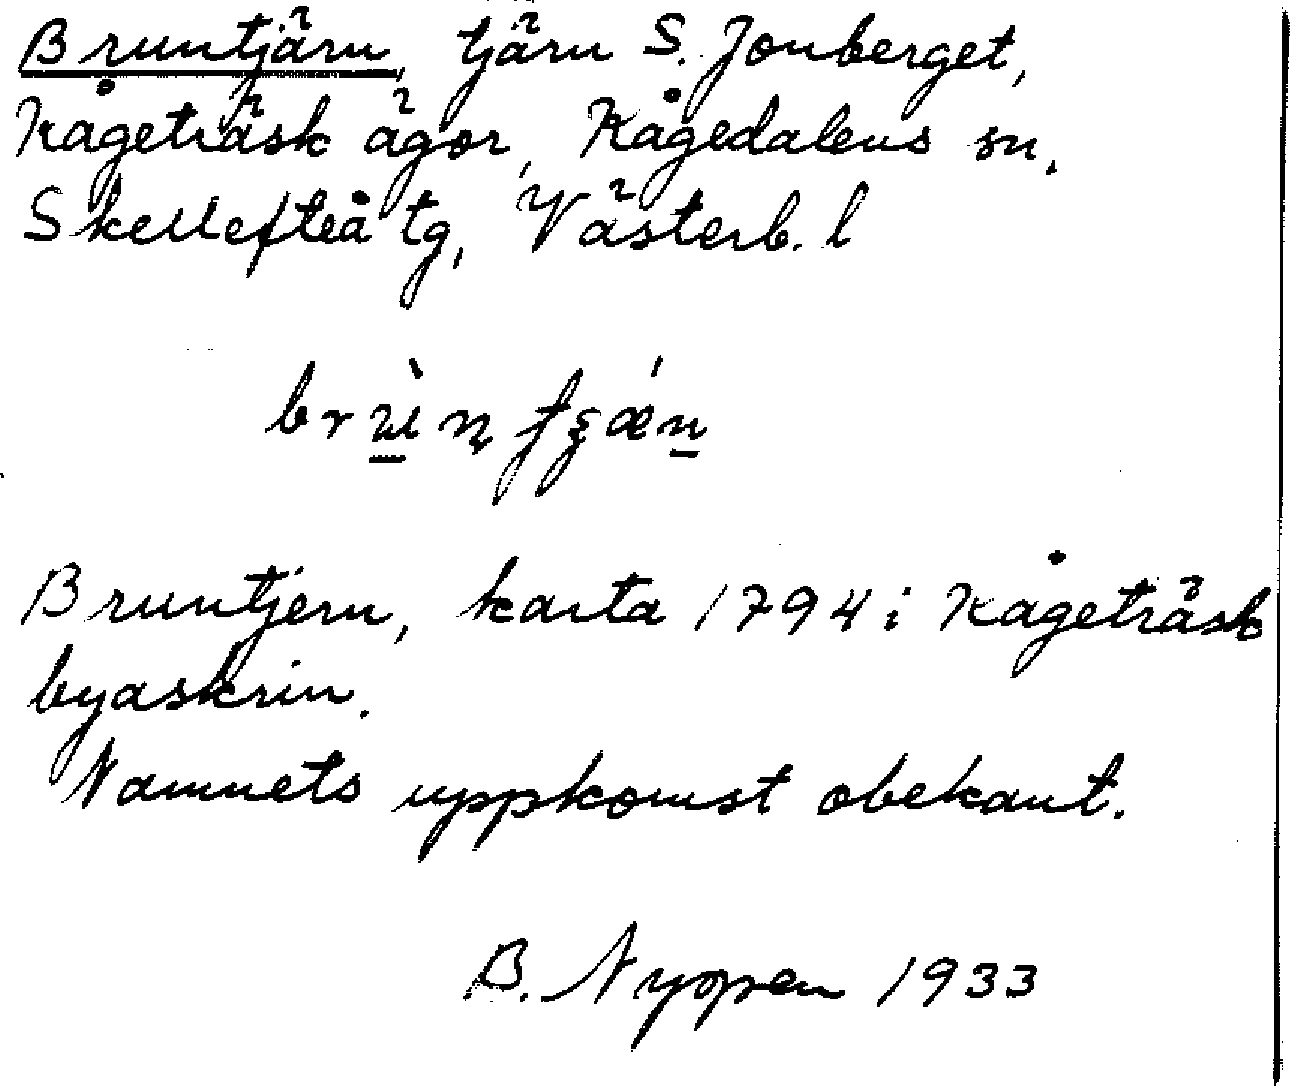 Bruntjärn, tjärn S. Jonberget,
Kågeträsk ägor, Kågedalens sn,
Skellefteå tg, Västerb. l
Bruntjern, karta 1794 i Kågeträsk
byaskrin.
Namnets uppkomst obekant.
B. Nyopen 1933